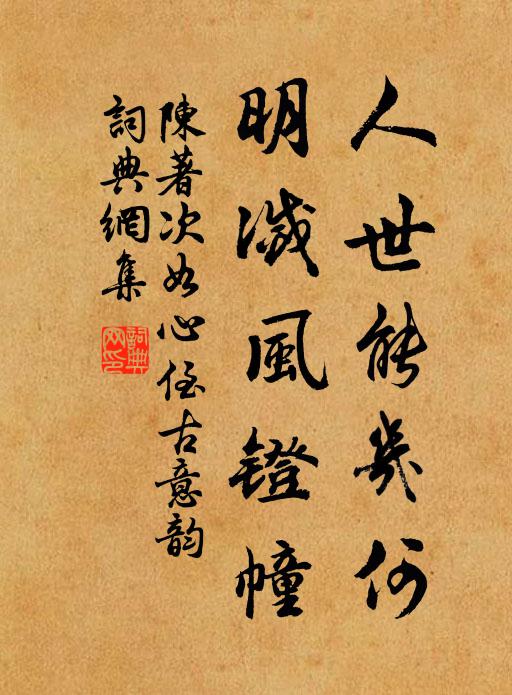 人世能幾何
明滅風鐙幢
陳著次如心侄古意韵
詞典網集
詞典網印